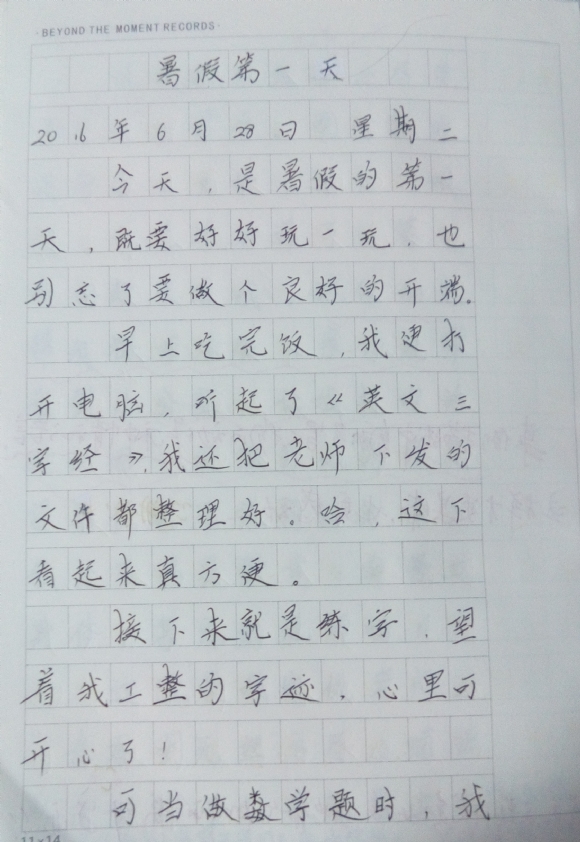 BEYOND THE MOMENT RECORDS
暑假第一天
2016年6月28日 星期二
今天,是暑假的第一
天,既要好好玩一玩,也
别忘了要做个良好的开端。
早上吃完饭,我便打
开电脑,听起了《英文三
字经》,我还把老师下发的
文件都整理好。哈,这下
看起来真方便。
接下来就是练字,望
着我工整的字迹,心里可
开心了!
可当做数学题时,我
11×14